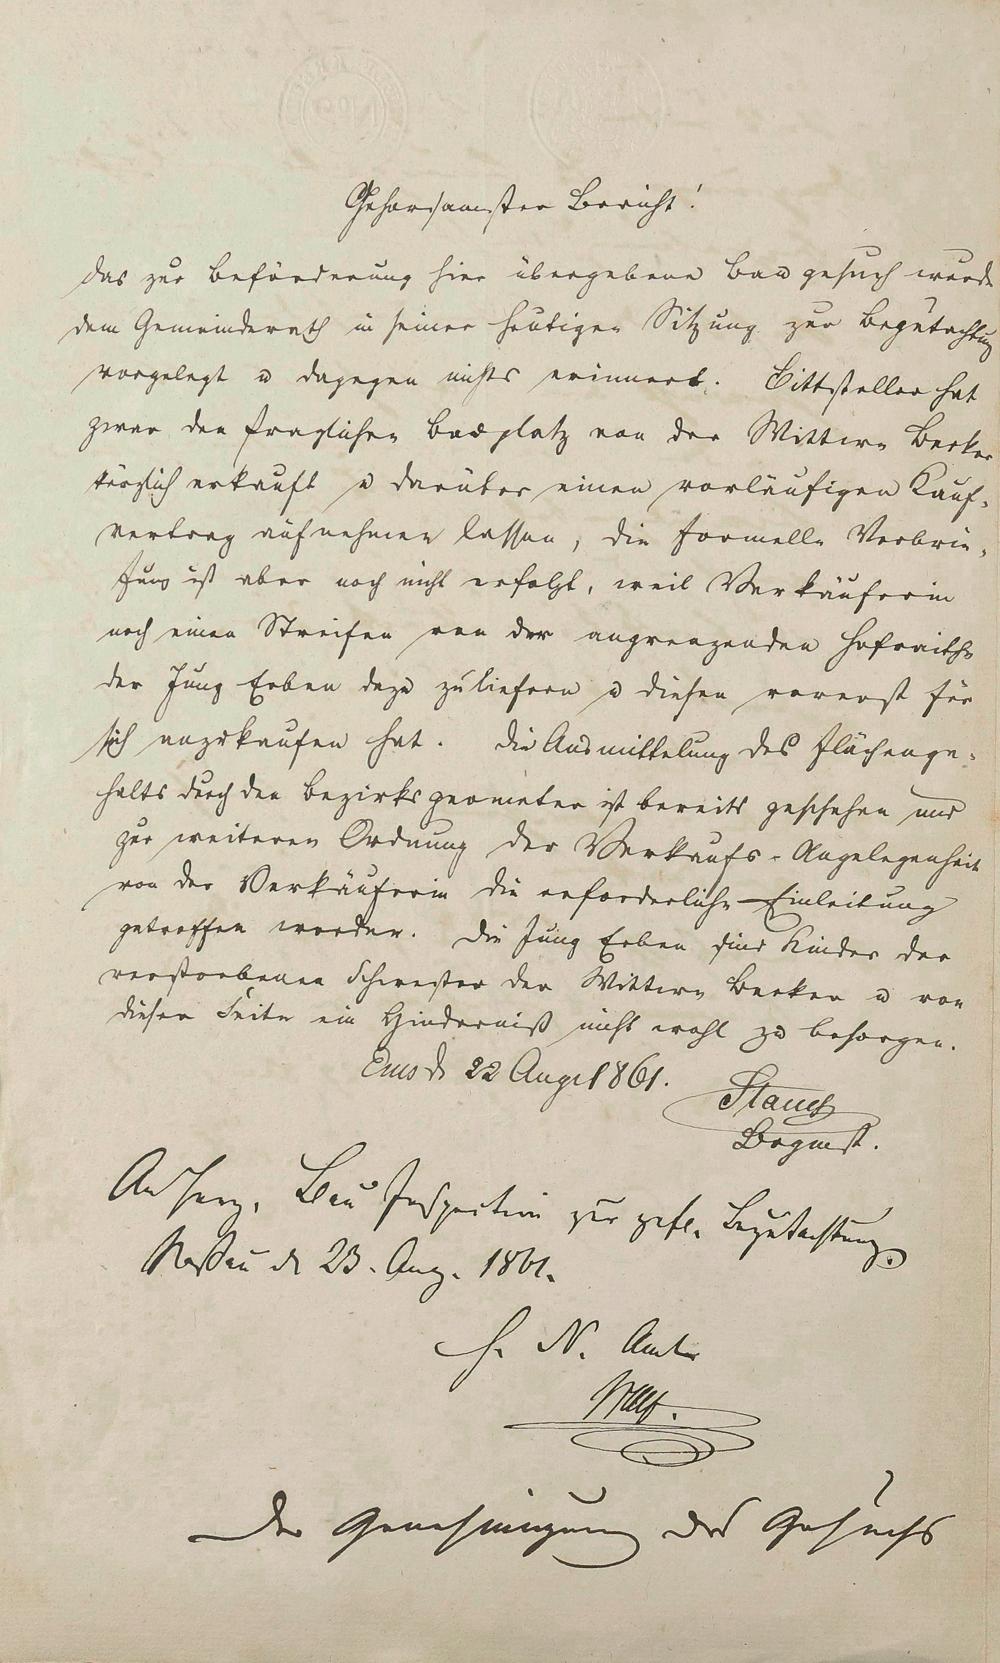 Gehorsamster Bericht!
Das zur Beförderung hier übergebene Baugesuch wurde
dem Gemeinderath in seiner heutigen Sitzung zur Begutachtung
vorgelegt u dagegen nichts erinnert. Bittsteller hat
zwar den fraglichen Bauplatz von der Wittwe Becker
kürzlich erkauft u darüber einen vorläufigen Kauf-
vertrag aufnehmen lassen, die formelle Verbrie-
fung ist aber noch nicht erfolgt, weil Verkäuferin
noch einen Streifen von der angrenzenden Hofraithe
der Jung Erben dazu zuliefern u diesen vorerst für
sich anzukaufen hat. Die Ausmittelung des Flächenge-
halts durch den Bezirksgeometer ist bereits geschehen und
zur weiteren Ordnung der Verkaufs-Angelegenheit
von der Verkäuferin die erforderliche Einleitung
getroffen worden. Die Jung Erben sind Kinder der
verstorbenen Schwester der Wittwe Becker u von
dieser Seite ein Hinderniß nicht wohl zu besorgen.
Ems d 22 Augst 1861.
Brgmst.
An Herz. Bau Inspection zur gefl. Begutachtung.
Nassau d 23. Aug. 1861.
H. N. Amt
Der Genehmigung des Gesuchs